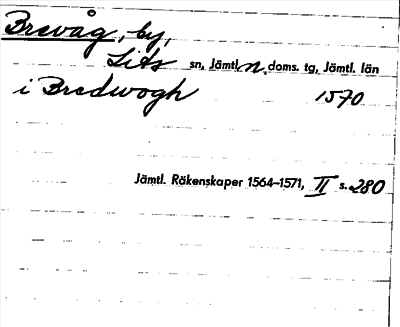 Brevåg, by,
Lits sn, Jämtl. n. doms. tg, Jämtl. län
i Bredwogh 1570
Jämtl. Räkenskaper 1564–1571, II s. 280